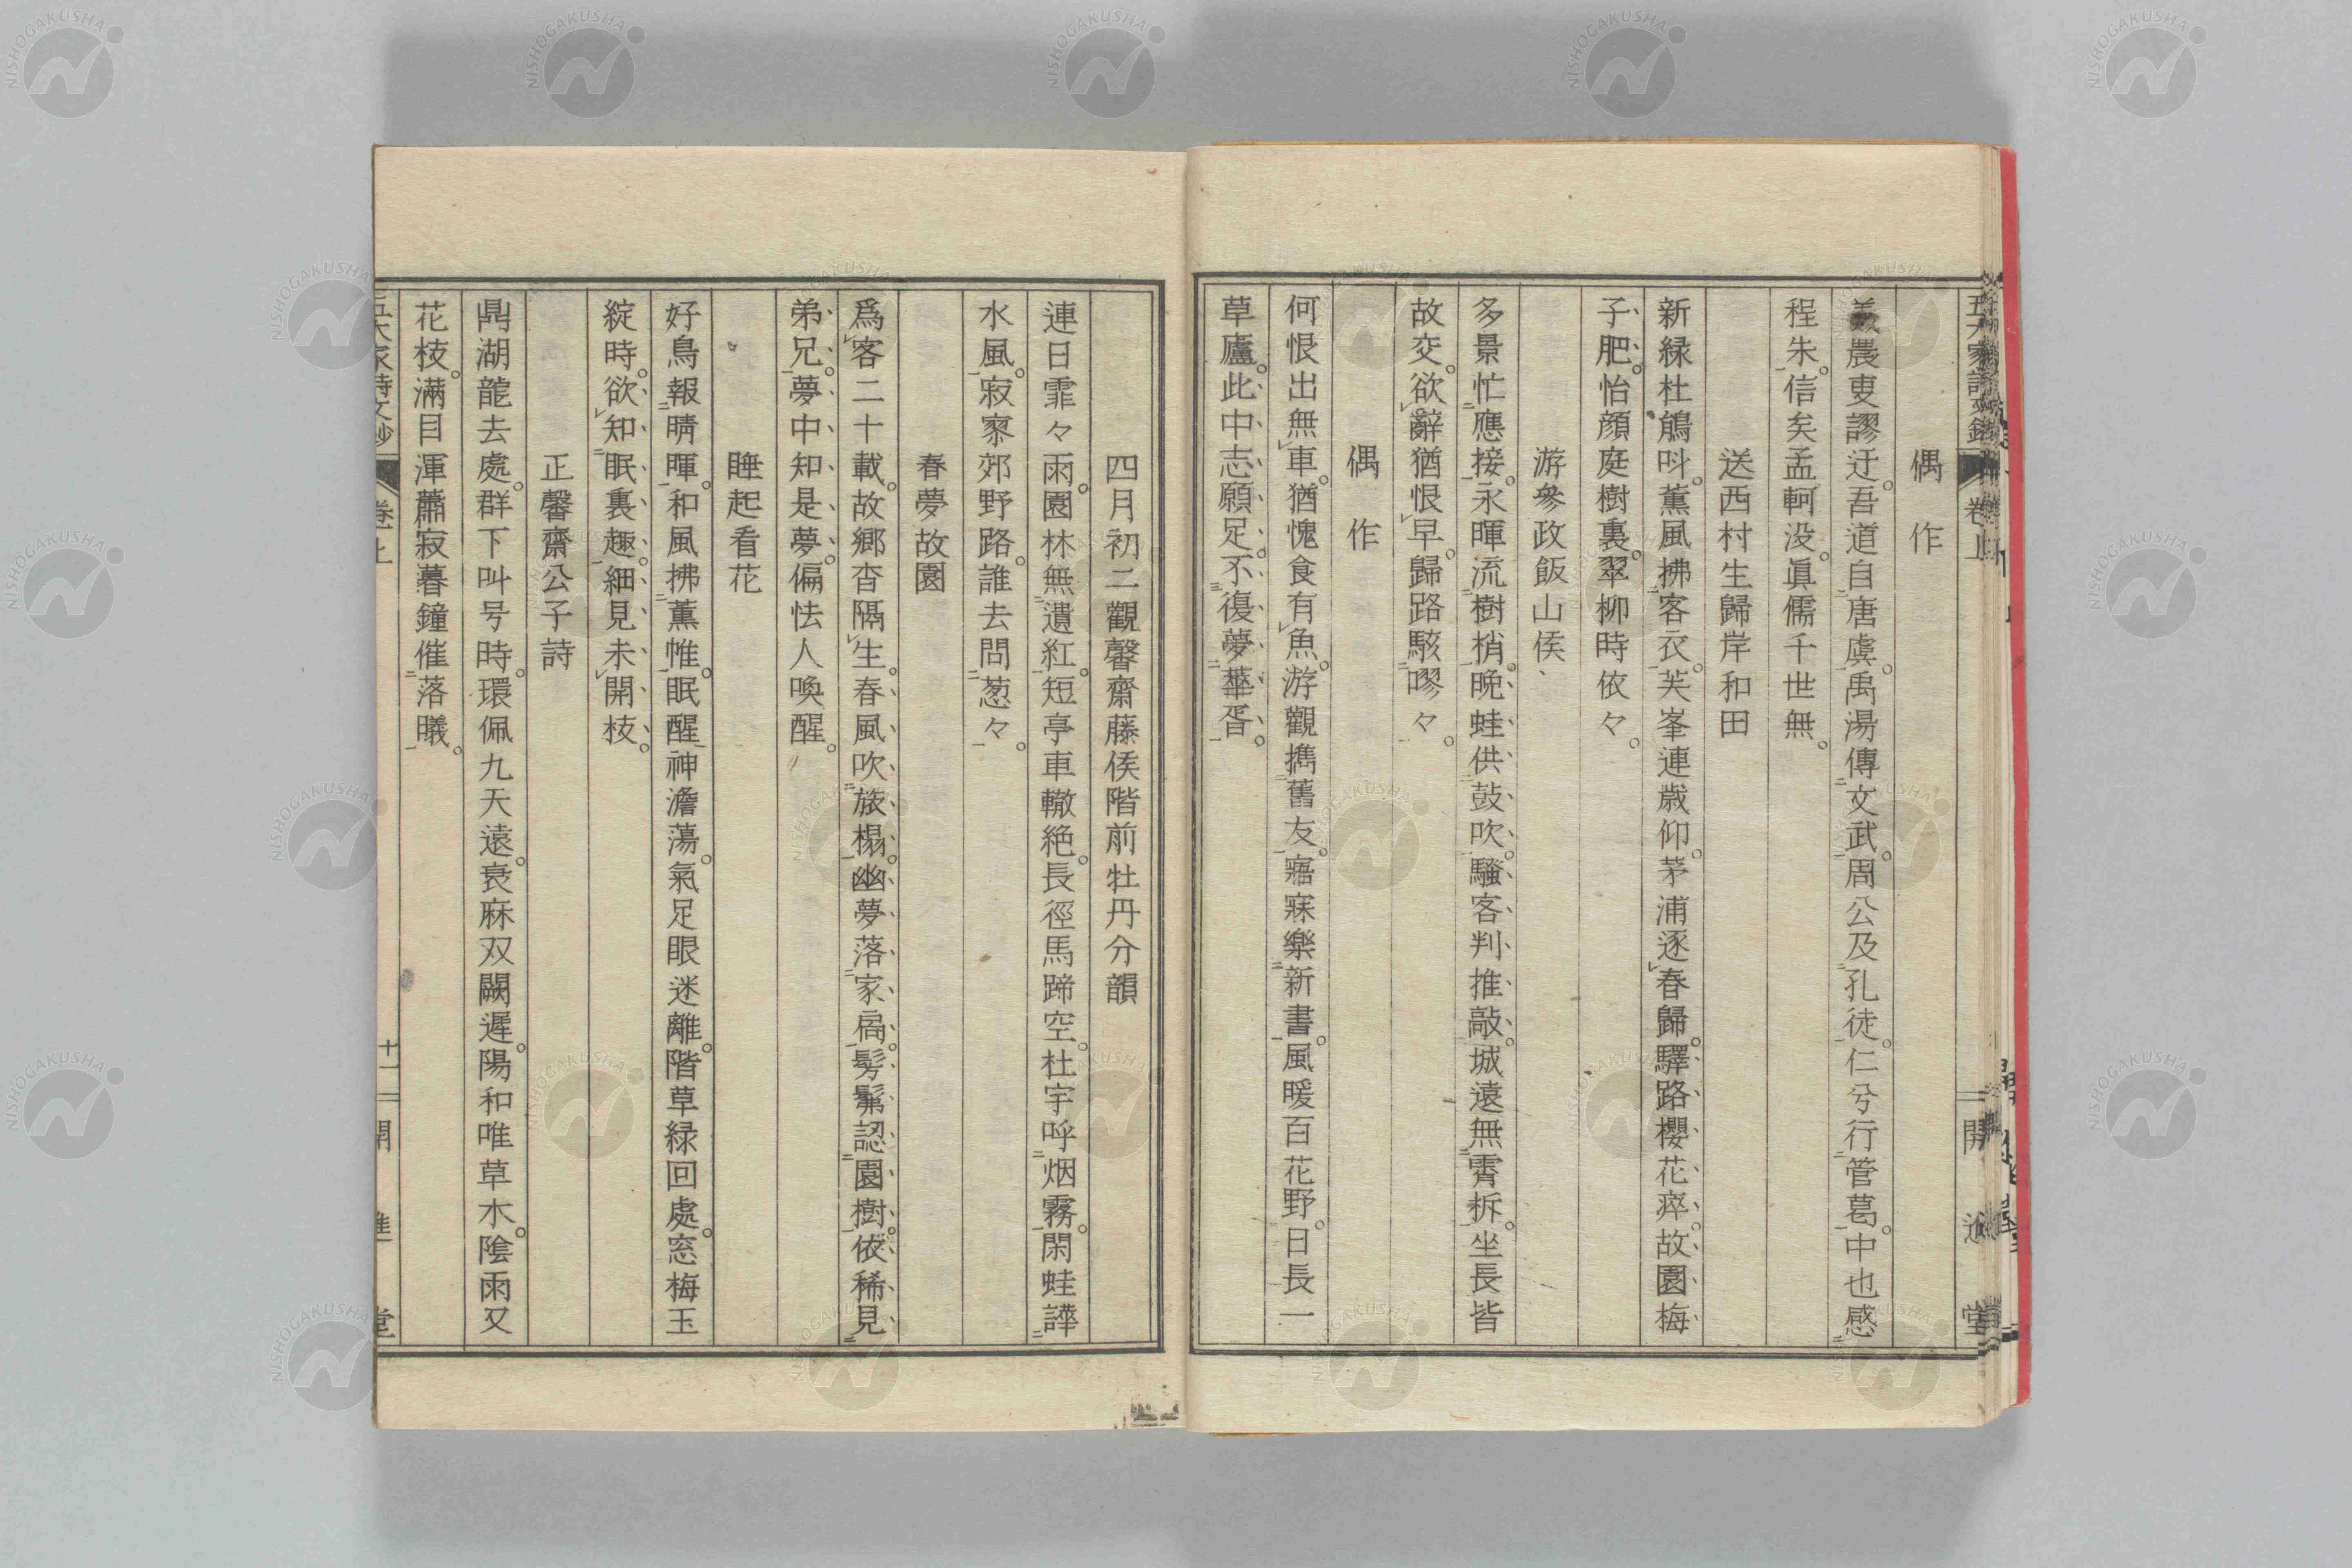 偶作
羲農叓謬迂。吾道自唐虞。禹湯傳文武。周公及孔徒。仁兮行管葛。中也感
程朱。信矣孟軻没。眞儒千世無。
送西村生歸岸和田
新緑杜鵑呌。薫風拂客衣。芙峯連歳仰。茅浦逐春歸。驛路櫻花瘁。故園梅
子肥。怡顔庭樹裏。翠柳時依々。
游參政飯山侯、
多景忙應接。永暉流樹梢。晩蛙供鼓吹。騷客判推敲。城遠無霄柝。坐長皆
故交。欲辭猶恨早。歸路駭嘐々。
偶作
何恨出無車。猶愧食有魚。游觀携舊友。寤寐樂新書。風暖百花野。日長一
草廬。此中志願足。不復夢華胥。
卷上
開
堂
四月初二觀馨齋藤侯階前牡丹分韻
連日霏々雨。園林無遺紅。短亭車轍絶。長徑馬蹄空。杜宇呼烟霧。閑蛙譁
水風。寂寥郊野路。誰去問葱々。
春夢故園
爲客二十載。故郷杳隔生。春風吹旅榻。幽夢落家扄。髣髴認園樹。依稀見
弟兄。夢中知是夢。偏怯人喚醒。
睡起看花
好鳥報晴暉。和風拂薫帷。眠醒神澹蕩。氣足眼迷離。階草緑回處。窓梅玉
綻時。欲知眠裏趣。細見未開枝。
正馨齋公子詩
鼎湖龍去處。群下叫号時。環佩九天遠。衰麻双闕遲。陽和唯草木。陰雨又
花枝。滿目渾蕭寂。暮鐘催落曦。
五大家詩文鈔
卷上
十一
開
進
堂
NISHOGAKUSHA